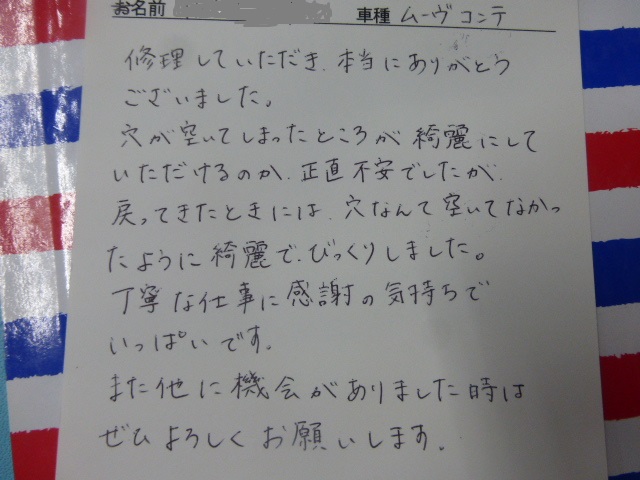 お名前 車種 ムーヴコンテ
修理していただき、本当にありがとう
ございました。
穴が空いてしまったところが綺麗にして
いただけるのか、正直不安でしたが、
戻ってきたときには、穴なんて空いてなかっ
たように綺麗で、びっくりしました。
丁寧な仕事に感謝の気持ちで
いっぱいです。
また他に機会がありました時は
ぜひよろしくお願いします。